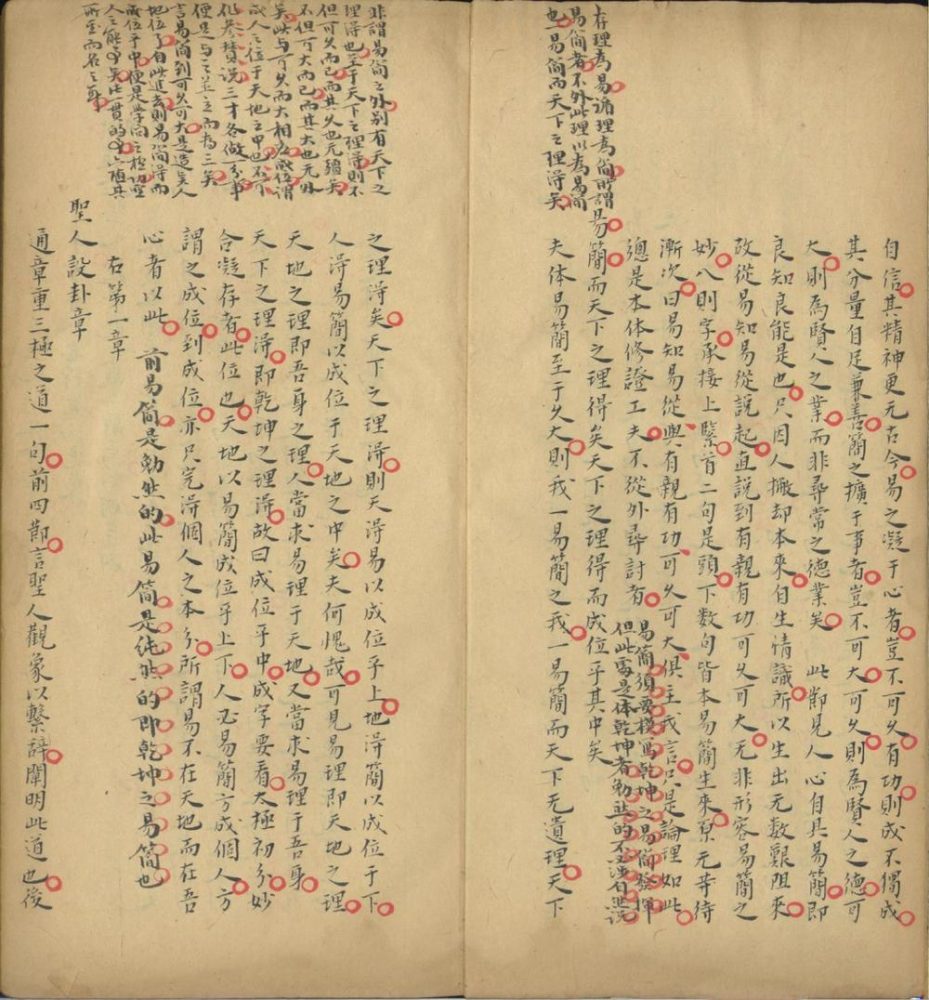 存理為易循理為簡所謂
易簡者不外此理以為易簡
也易簡而天下之理得矣
自信其精神更无古今易之凝于心者豈不可久有功則成不獨成
其分量自足兼善簡之擴于事者豈不可大可久則為賢人之德可
大則為賢人之業而非尋常之德業矣 此節見人心自具易簡即
良知良能是也只因人撇却本來自生情識所以生出无數艱阻來
故從易知易從說起直說到有親有功可久可大无非形容易簡之
妙八則字承接上緊首二句是頭下數句皆本易簡生來原无等待
漸次曰易知易從與有親有功可久可大俱主我言只是論理如此
總是本体修證工夫不從外尋討者
易簡須要模寫乾坤之易簡發揮
但此處是体乾坤者勉然的不涉自然說
易簡而天下之理得矣天下之理得而成位乎其中矣
夫体易簡至于久大則我一易簡之我一易簡而天下无遺理天下
非謂易簡之外別有天下之
理得也至于天下之理得則不
但可久而已而其久也无疆矣
不但可大而已而其大也无外
矣此与可久而大相成位謂
成人之位于天地之中也不可
作參贊說三才各做分事
便是与之並立而為三矣
言易簡到可久可大是造至人
地位了自此進去則易簡得而
成位乎中便是學問之極功聖
人之能矣此一貫的隨其
所至而名之耳
之理得矣天下之理得則天得易以成位乎上地得簡以成位于下
人得易簡以成位于天地之中矣夫何愧哉可見易理即天地之理
天地之理即吾身之理人當求易理于天地又當求易理于吾身
天下之理得即乾坤之理得故曰成位乎中成字要看太極初分妙
合凝存者此位也天地以易簡成位乎上下人必易簡方成個人方
謂之成位到成位亦只完得個人之本分所謂易不在天地而在吾
心者以此 前易簡是勉然的此易簡是純然的即乾坤之易簡也
右第一章
聖人設卦章
通章重三極之道一句前四節言聖人觀象以繫辭闡明此道也後